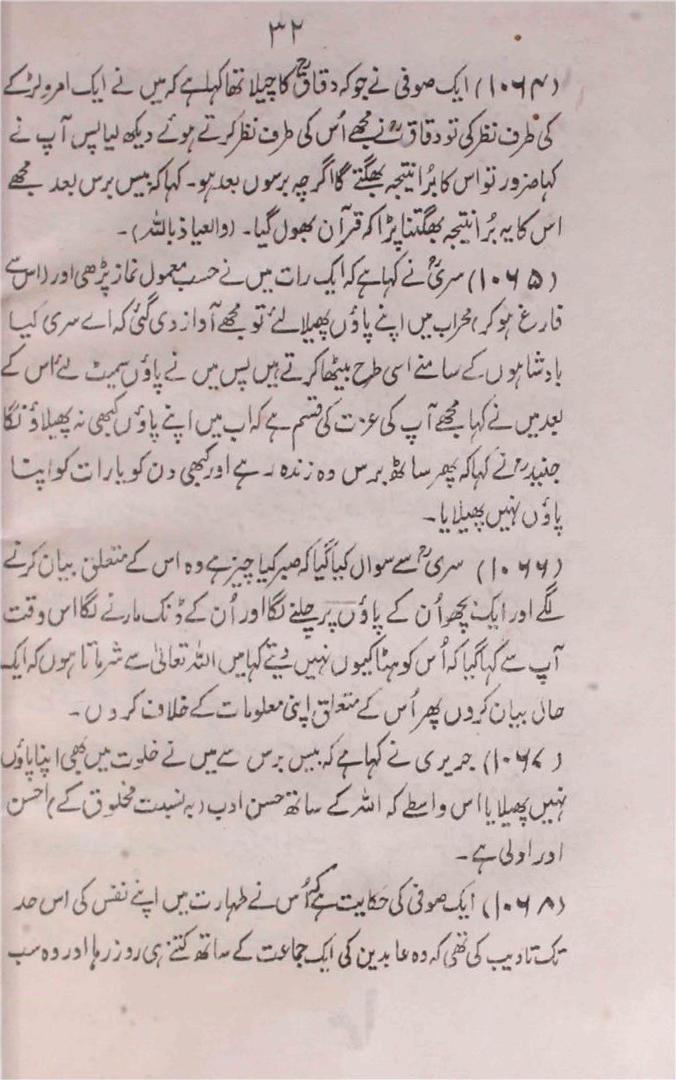 ۳۲
(۱۰۶۴) ایک صوفی نے جو کہ دقاقؒ کا چیلا تھا کہا ہے کہ میں نے ایک امرد لڑکے
کی طرف نظر کی تو دقاقؒ نے مجھے اُس کی طرف نظر کرتے ہوئے دیکھ لیا پس آپ نے
کہا ضرور تو اس کا بُرا نتیجہ بھگتے گا اگرچہ برسوں بعد ہو۔ کہا کہ بیس برس بعد مجھے
اس کا یہ بُرا نتیجہ بھگتنا پڑا کہ قرآن بھول گیا۔ (والعیاذ باللہ)۔
(۱۰۶۵) سریؒ نے کہا ہے کہ ایک رات میں نے حسب معمول نماز پڑھی اور (اس سے
فارغ ہو کر) محراب میں اپنے پاؤں پھیلا لئے تو مجھے آواز دی گئی کہ اے سری کیا
بادشاہوں کے سامنے اسی طرح بیٹھا کرتے ہیں پس میں نے پاؤں سمیٹ لئے اس کے
بعد میں نے کہا مجھے آپ کی عزت کی قسم ہے کہ اب میں اپنے پاؤں کبھی نہ پھیلاؤنگا
جنیدؒ نے کہا کہ پھر ساٹھ برس وہ زندہ رہے اور کبھی دن کو یا رات کو اپنا
پاؤں نہیں پھیلایا۔
(۱۰۶۶) سریؒ سے سوال کیا گیا کہ صبر کیا چیز ہے وہ اس کے متعلق بیان کرنے
لگے اور ایک بچھو اُن کے پاؤں پر چلنے لگا اور اُن کے ڈنک مارنے لگا اس وقت
آپ سے کہا گیا کہ اُس کو ہٹا کیوں نہیں دیتے کہا میں اللہ تعالیٰ سے شرماتا ہوں کہ ایک
حال بیان کروں پھر اُس کے متعلق اپنی معلومات کے خلاف کروں۔
(۱۰۶۷) جریری نے کہا ہے کہ بیس برس سے میں نے خلوت میں بھی اپنا پاؤں
نہیں پھیلایا اس واسطے کہ اللہ کے ساتھ حسن ادب (بہ نسبت مخلوق کے) احسن
اور اولی ہے۔
(۱۰۶۸) ایک صوفی کی حکایت ہے کہ اُس نے طہارت میں اپنے نفس کی اس حد
تک تادیب کی تھی کہ وہ عابدین کی ایک جماعت کے ساتھ کتنے ہی روز رہا اور وہ سب